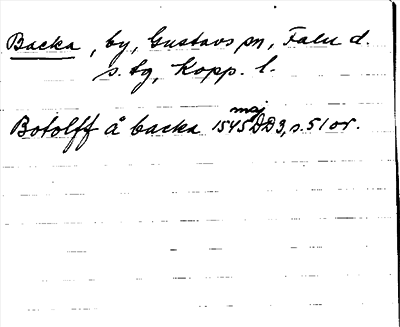 Backa, by, Gustavs sn, Falu d.
s. tg, Kopp. l.
maj
Botolff å backa 1545 DD3, s. 51 or.